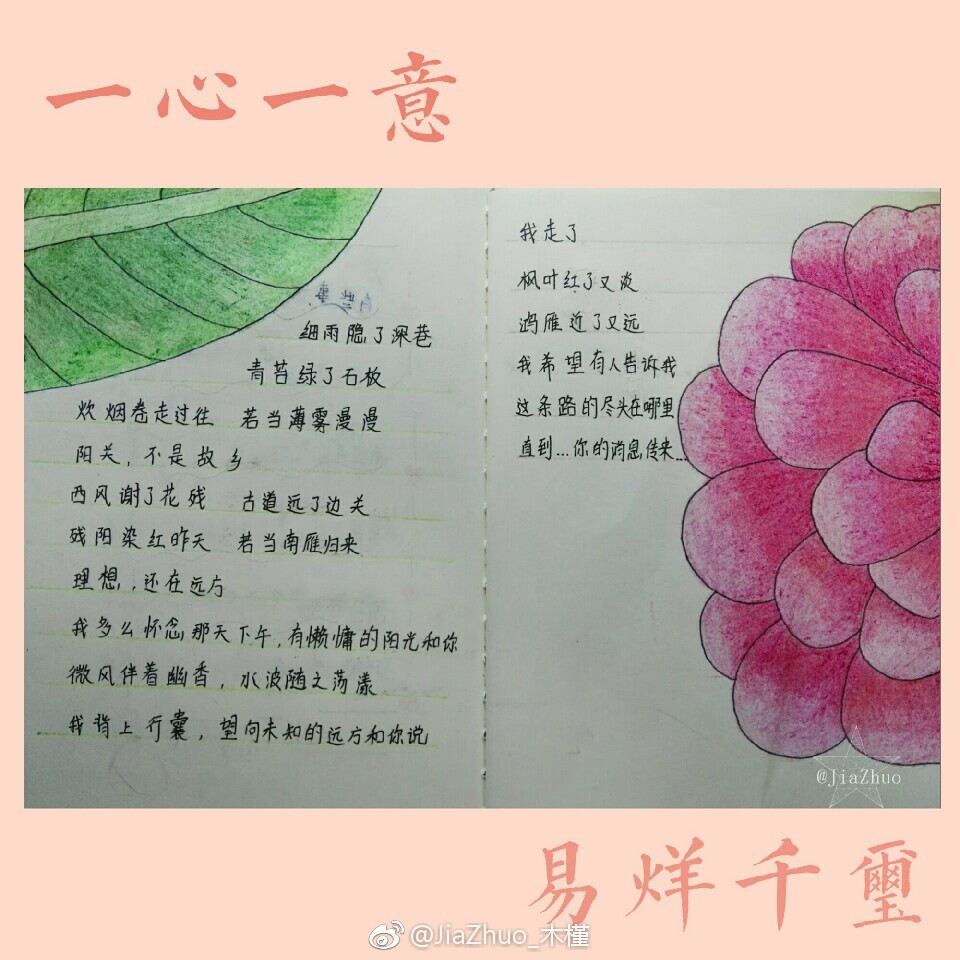 一心一意
细雨隐了深巷
青苔绿了石板
炊烟卷走过往 若当薄雾漫漫
阳关，不是故乡
西风谢了花残 古道远了边关
残阳染红昨天 若当南雁归来
理想，还在远方
我多么怀念那天下午，有懒慵的阳光和你
微风伴着幽香，水波随之荡漾
我背上行囊，望向未知的远方和你说
我走了
枫叶红了又淡
鸿雁近了又远
我希望有人告诉我
这条路的尽头在哪里
直到...你的消息传来...
@JiaZhuo
易烊千璽
@JiaZhuo_木槿